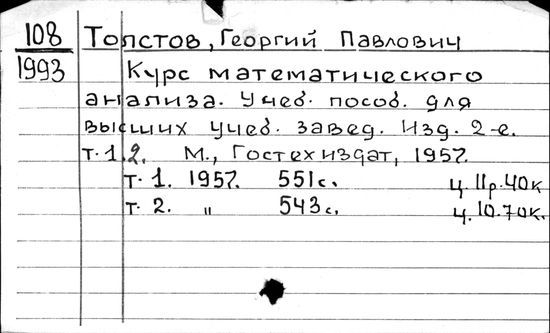 108 Толстов, Георгий Павлович
1993 Курс математического
анализа. Учеб. пособ. для
высших учеб. завед. Изд. 2-е.
т. 1.2. М., Гостехиздат, 1957.
т. 1. 1957. 551с. ц. 11р.40к
т. 2. " 543с. ц. 10.70к.